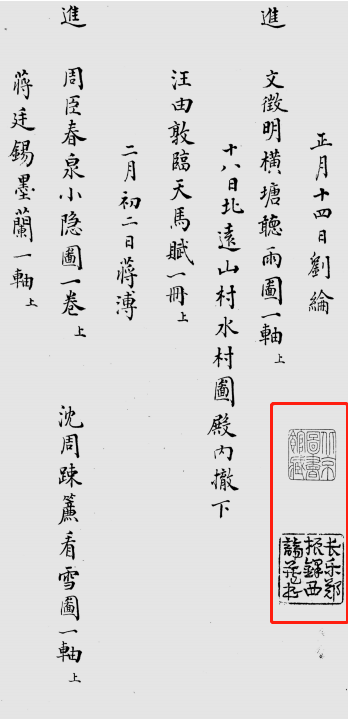 北京
圖書
館藏
长乐郑
振鐸西
諦藏书
正月十四日劉綸
進 文徵明橫塘聽雨圖一軸上
十八日北遠山村水村圖殿内撤下
汪由敦臨天馬賦一冊上
二月初二日蔣溥
進 周臣春泉小隐圖一卷上 沈周踈簾看雪圖一軸上
蔣廷錫墨蘭一軸上